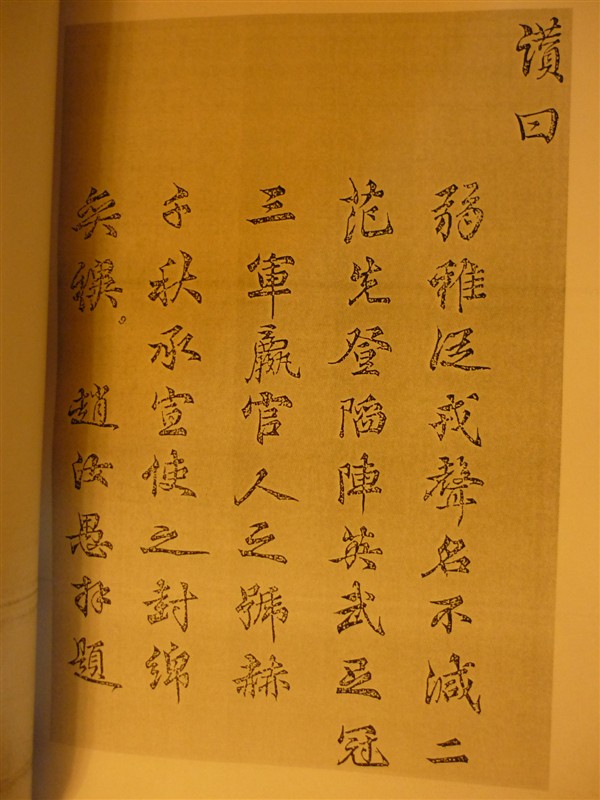 讃曰
弱稚從戎聲名不減二
范先登陷陣英武足冠
三軍贏官人之號赫
千秋承宣使之封綿
奕禩。趙汝愚拜題